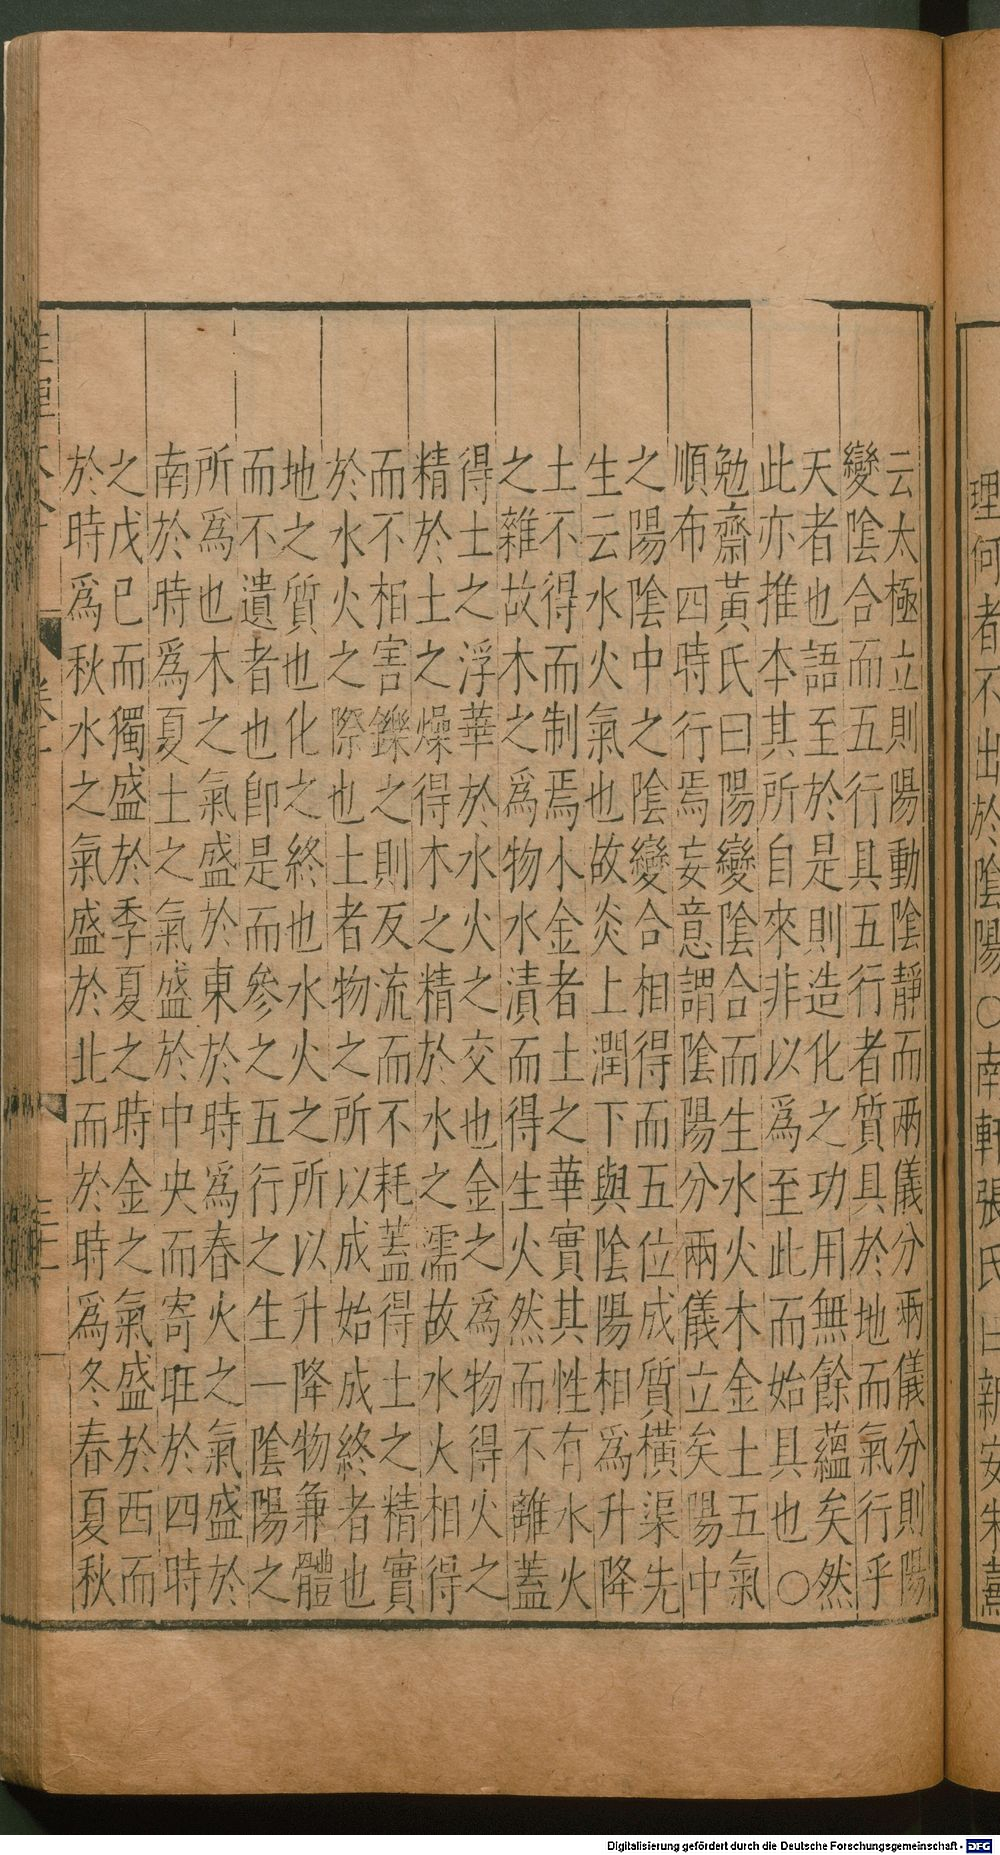 理何者不出於陰陽○南軒張氏曰新安朱熹
云太極立則陽動陰靜而兩儀分兩儀分則陽
變陰合而五行具五行者質具於地而氣行乎
天者也語至於是則造化之功用無餘蘊矣然
此亦推本其所自來非以爲至此而始具也○
勉齋黃氏曰陽變陰合而生水火木金土五氣
順布四時行焉妄意謂陰陽分兩儀立矣陽中
之陽陰中之陰變合相得而五位成質橫渠先
生云水火氣也故炎上潤下與陰陽相爲升降
土不得而制焉木金者土之華實其性有水火
之雜故木之爲物水漬而得生火然而不離蓋
得土之浮華於水火之交也金之爲物得火之
精於土之燥得木之精於水之濡故水火相得
而不相害鑠之則反流而不耗蓋得土之精實
於水火之際也土者物之所以成始成終者也
地之質也化之終也水火之所以升降物兼體
而不遺者也卽是而參之五行之生一陰陽之
所爲也木之氣盛於東於時爲春火之氣盛於
南於時爲夏土之氣盛於中央而寄旺於四時
之戊己而獨盛於季夏之時金之氣盛於西而
於時爲秋水之氣盛於北而於時爲冬春夏秋
Digitalisierung gefördert durch die Deutsche Forschungsgemeinschaft - DFG